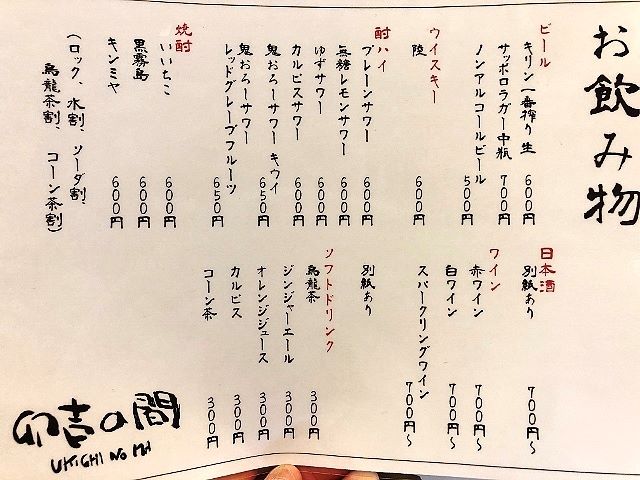 お飲み物
ビール
キリン一番搾り 生 600円
サッポロラガー中瓶 700円
ノンアルコールビール 500円
ウイスキー
陸 600円
酎ハイ
プレーンサワー 600円
無糖レモンサワー 600円
ゆずサワー 600円
カルピスサワー 600円
鬼おろしサワー キウイ 650円
鬼おろしサワー
レッドグレープフルーツ 650円
焼酎
いいちこ 600円
黒霧島 600円
キンミヤ 600円
(ロック、水割、ソーダ割、
烏龍茶割、コーン茶割)
日本酒
別紙あり 700円〜
ワイン
赤ワイン 700円〜
白ワイン 700円〜
スパークリングワイン 700円〜
別紙あり
ソフトドリンク
烏龍茶 300円
ジンジャーエール 300円
オレンジジュース 300円
カルピス 300円
コーン茶 300円
卯吉の間
UKICHI NO MA